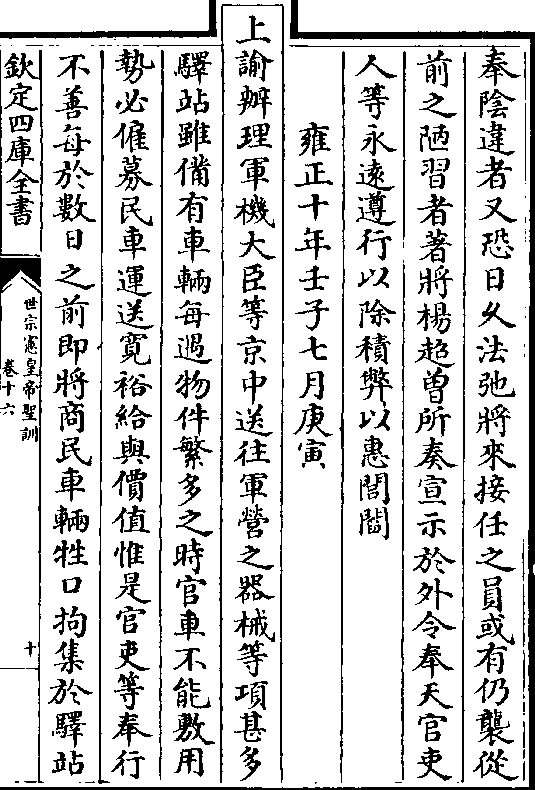 奉陰違者又恐日久法弛將來接任之員或有仍襲從
前之陋習者著將楊超曾所奏宣示於外令奉天官吏
人等永遠遵行以除積弊以惠閭閻
雍正十年壬子七月庚寅
上諭辦理軍機大臣等京中送往軍營之器械等項甚多
驛站雖備有車輛每遇物件繁多之時官車不能敷用
勢必僱募民車運送寬裕給與價值惟是官吏等奉行
不善每於數日之前即將商民車輛牲口拘集於驛站
欽定四庫全書
世宗憲皇帝聖訓
卷十六
十